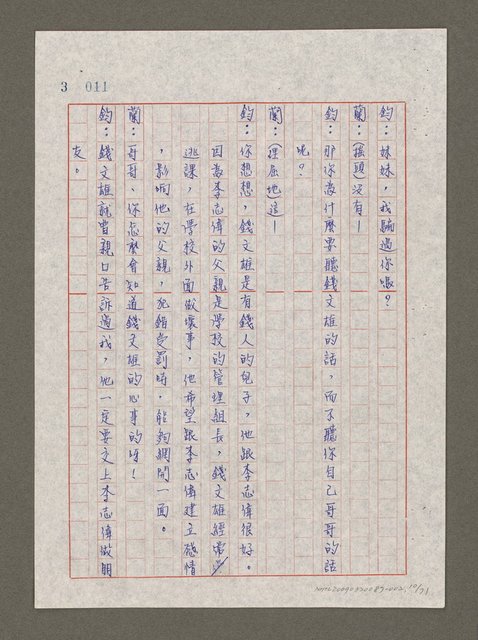 3 011
鈞：妹妹，我騙過你嗎？
蘭：(搖頭)沒有—
鈞：那你為什麼要聽錢文雄的話，而不聽你自己哥哥的話
呢？
蘭：(理屈地)這—
鈞：你想想，錢文雄是有錢人的兒子，他跟李志偉很好。
因為李志偉的父親是學校的管理組長，錢文雄經常
逃課，在學校外面做壞事，他希望跟李志偉建立感情
，影响他的父親，犯錯受罰時，能夠網開一面。
蘭：哥哥，你怎麼會知道錢文雄的心事的呀！
鈞：錢文雄就曾親口告訴過我，他一定要交上李志偉做朋
友。